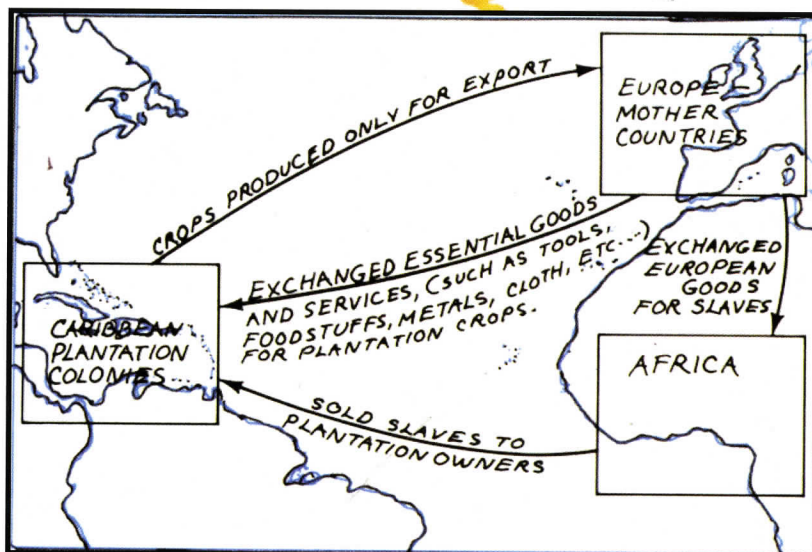 EUROPE -
MOTHER
COUNTRIES
CROPS PRODUCED ONLY FOR EXPORT
EXCHANGED ESSENTIAL GOODS
AND SERVICES, (SUCH AS TOOLS,
FOODSTUFFS, METALS, CLOTH, ETC...)
FOR PLANTATION CROPS.
EXCHANGED
EUROPEAN
GOODS
FOR SLAVES
CARIBBEAN
PLANTATION
COLONIES
AFRICA
SOLD SLAVES TO
PLANTATION OWNERS